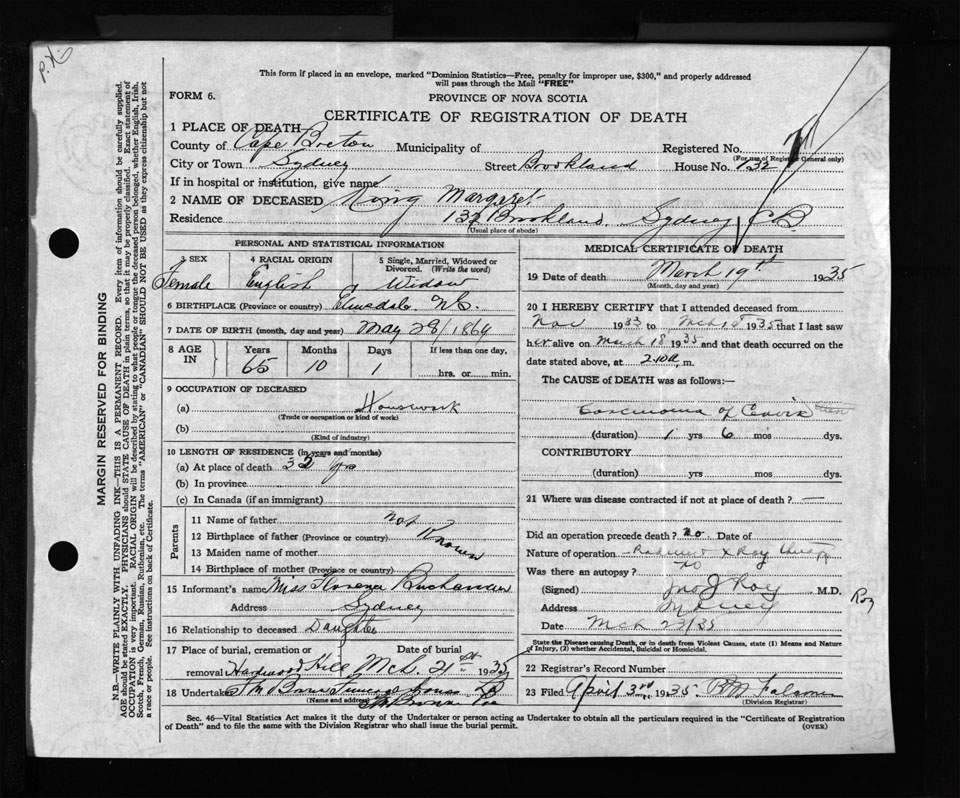 P.K.
This form if placed in an envelope, marked "Dominion Statistics—Free, penalty for improper use, $300," and properly addressed
will pass through the Mail "FREE"
FORM 6.
PROVINCE OF NOVA SCOTIA
CERTIFICATE OF REGISTRATION OF DEATH
1 PLACE OF DEATH
County of Cape Breton Municipality of Registered No.
(For use of Registrar General only)
City or Town Sydney Street Brookland House No. 132
If in hospital or institution, give name
2 NAME OF DECEASED King Margaret
Residence 132 Brookland, Sydney C.B.
(Usual place of abode)
PERSONAL AND STATISTICAL INFORMATION
3 SEX 4 RACIAL ORIGIN 5 Single, Married, Widowed or
Divorced. (Write the word)
Female English Widow
6 BIRTHPLACE (Province or country) Elmsdale N.S.
7 DATE OF BIRTH (month, day and year) May 28/1869
8 AGE IN Years Months Days If less than one day,
65 10 1 hrs. or min.
9 OCCUPATION OF DECEASED
(a) Housework
(Trade or occupation or kind of work)
(b)
(Kind of industry)
10 LENGTH OF RESIDENCE (in years and months)
(a) At place of death 32 yrs
(b) In province
(c) In Canada (if an immigrant)
Parents
11 Name of father not
12 Birthplace of father (Province or country) Known
13 Maiden name of mother
14 Birthplace of mother (Province or country)
15 Informant's name Miss Florence Buchanan
Address Sydney
16 Relationship to deceased Daughter
17 Place of burial, cremation or removal Date of burial
Hardwood Hill Mch. 21st 1935
18 Undertaker Funeral
(Name and address)
MEDICAL CERTIFICATE OF DEATH
19 Date of death March 19th 1935
(Month, day and year)
20 I HEREBY CERTIFY that I attended deceased from
Nov 1933 to 1935 that I last saw
her alive on March 18 1935 and that death occurred on the
date stated above, at 2.10 a. m.
The CAUSE of DEATH was as follows:—
Carcinoma of Cervix
(duration) 1 yrs 6 mos dys.
CONTRIBUTORY
(duration) yrs. mos. dys.
21 Where was disease contracted if not at place of death? —
Did an operation precede death? no Date of
Nature of operation Radium & X Ray therapy
Was there an autopsy? no
(Signed) Jno J Roy M.D.
Roy
Address Sydney
Date Mch 23/35
State the Disease causing Death, or in death from Violent Causes, state (1) Means and Nature
of Injury, (2) whether Accidental, Suicidal or Homicidal.
22 Registrar's Record Number
23 Filed April 3rd 1935
(Division Registrar)
Sec. 46—Vital Statistics Act makes it the duty of the Undertaker or person acting as Undertaker to obtain all the particulars required in the "Certificate of Registration
of Death" and to file the same with the Division Registrar who shall issue the burial permit.
(OVER)
MARGIN RESERVED FOR BINDING
N.B.—WRITE PLAINLY WITH UNFADING INK—THIS IS A PERMANENT RECORD. Every item of information should be carefully supplied.
AGE should be stated EXACTLY. PHYSICIANS should STATE CAUSE OF DEATH in plain terms, so that it may be properly classified. Exact statement of
OCCUPATION is very important. RACIAL ORIGIN will be described by stating to what people or tongue the deceased person belonged, whether English, Irish,
Scotch, French, German, Russian, Ruthenian, etc. The terms "AMERICAN" or "CANADIAN" SHOULD NOT BE USED as they express citizenship but not
a race or people. See instructions on back of Certificate.